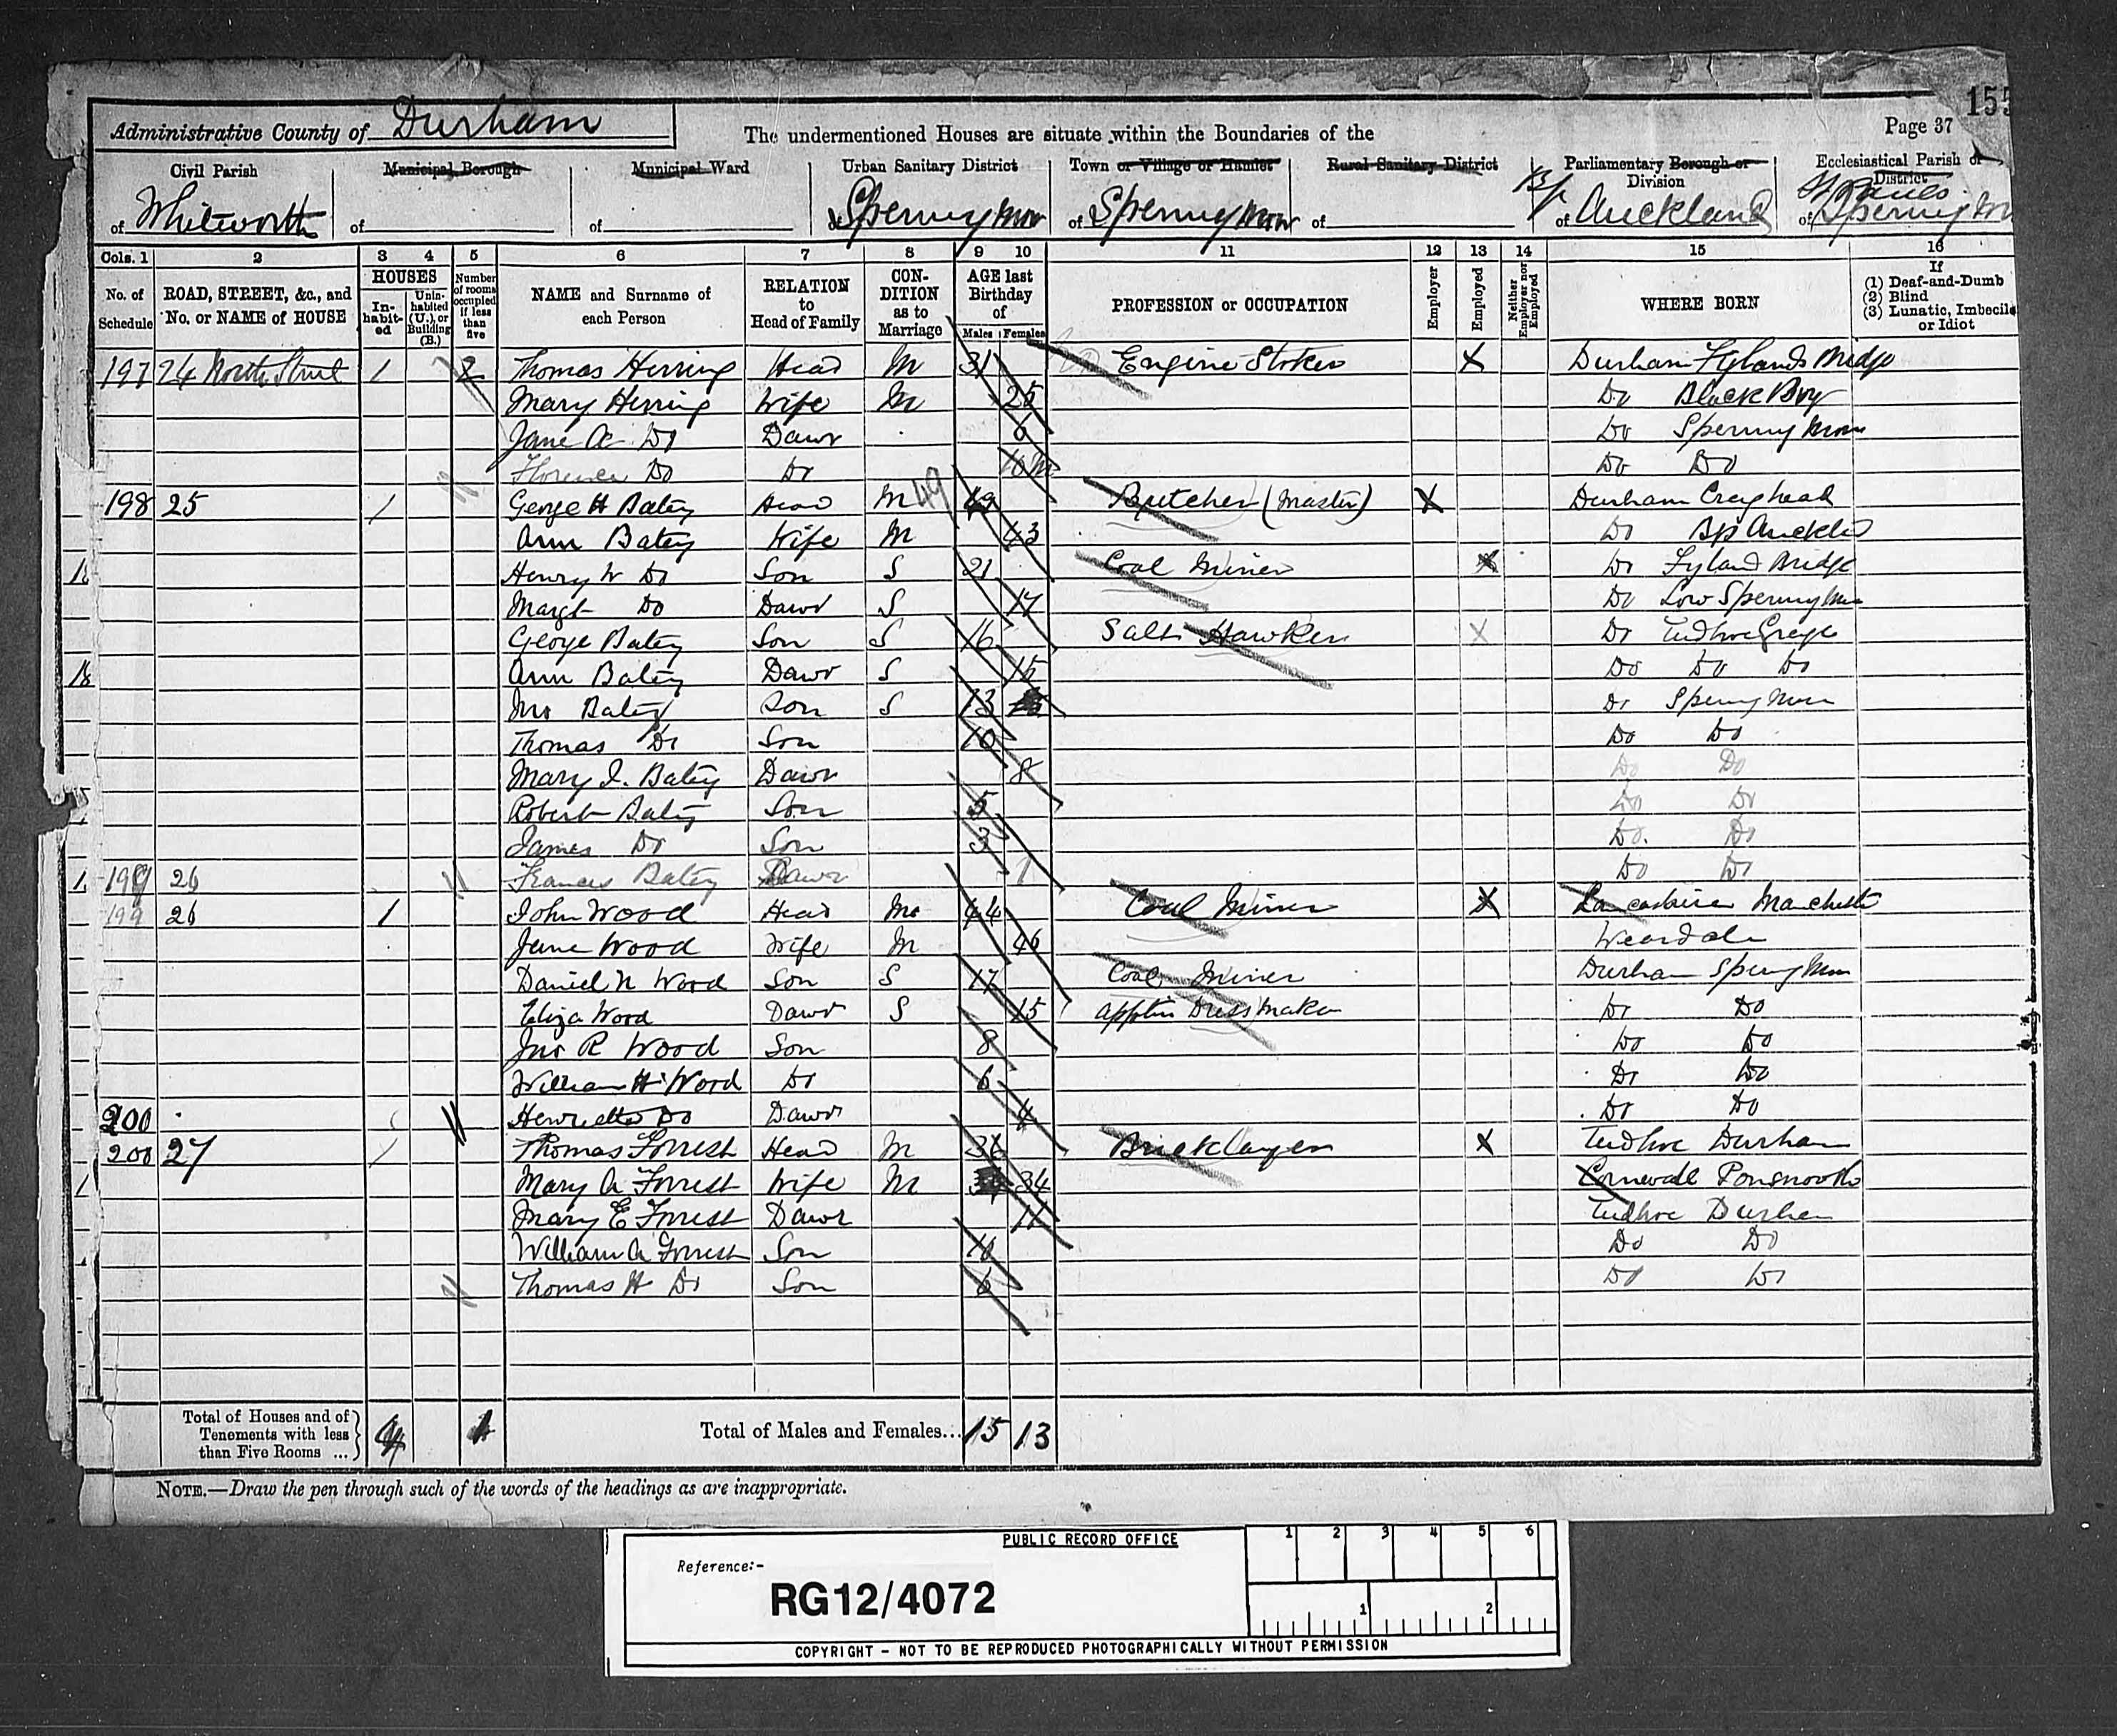 155
Page 37
Administrative County of Durham
The undermentioned Houses are situate within the Boundaries of the
Civil Parish of Whitworth
Municipal Borough of
Municipal Ward of
Urban Sanitary District of Spennymoor
Town or Village or Hamlet of Spennymoor
Rural Sanitary District of
Parliamentary Borough or Division of Auckland
Ecclesiastical Parish or District of St Pauls Spennymoor
Cols. 1 2 3 4 5 6 7 8 9 10 11 12 13 14 15 16
No. of Schedule
ROAD, STREET, &c., and No. or NAME of HOUSE
HOUSES
In-habit-ed
Unin-habited (U.), or Building (B.)
Number of rooms occupied if less than five
NAME and Surname of each Person
RELATION to Head of Family
CON-DITION as to Marriage
AGE last Birthday of
Males Females
PROFESSION or OCCUPATION
Employer
Employed
Neither Employer nor Employed
WHERE BORN
If (1) Deaf-and-Dumb (2) Blind (3) Lunatic, Imbecile or Idiot
197 24 North Street 1 2 Thomas Herring Head M 31 Engine Stoker X Durham Fylands Bridge
Mary Herring Wife M 25 Do Black Boy
Jane A Do Dawr Do Spennymoor
Florence Do Do 10m Do Do
198 25 1 George H Batey Head M 49 Butcher (Master) X Durham Craghead
Ann Batey Wife M 43 Do Bp Auckld
Henry W Do Son S 21 Coal Miner X Do Fyland Bridge
Margt Do Dawr S 17 Do Low Spennymoor
George Batey Son S 16 Salt Hawker X Do Tudhoe Grange
Ann Batey Dawr S 15 Do Do Do
Jno Batey Son S 13 Do Spennymoor
Thomas Do Son 10 Do Do
Mary I. Batey Dawr 8 Do Do
Robert Batey Son 5 Do Do
James Do Son 3 Do Do
199 26 Frances Batey Dawr 1 Do Do
199 26 1 John Wood Head M 44 Coal Miner X Lancashire Manchester
Jane Wood Wife M 46 Weardale
Daniel N Wood Son S 17 Coal Miner Durham Spennymoor
Eliza Wood Dawr S 15 Dress Maker Do Do
Jno R Wood Son 8 Do Do
William H Wood Do 6 Do Do
200 Henrietta Do Dawr 4 Do Do
200 27 1 Thomas Forrest Head M Bricklayer X Tudhoe Durham
Mary A Forrest Wife M 34 Cornwall Ponsnooth
Mary E Forrest Dawr 11 Tudhoe Durham
William A Forrest Son 10 Do Do
Thomas H Do Son 6 Do Do
Total of Houses and of Tenements with less than Five Rooms ... 4 1
Total of Males and Females... 15 13
NOTE.—Draw the pen through such of the words of the headings as are inappropriate.
PUBLIC RECORD OFFICE
1 2 3 4 5 6
Reference:-
RG12/4072
1 2
COPYRIGHT - NOT TO BE REPRODUCED PHOTOGRAPHICALLY WITHOUT PERMISSION